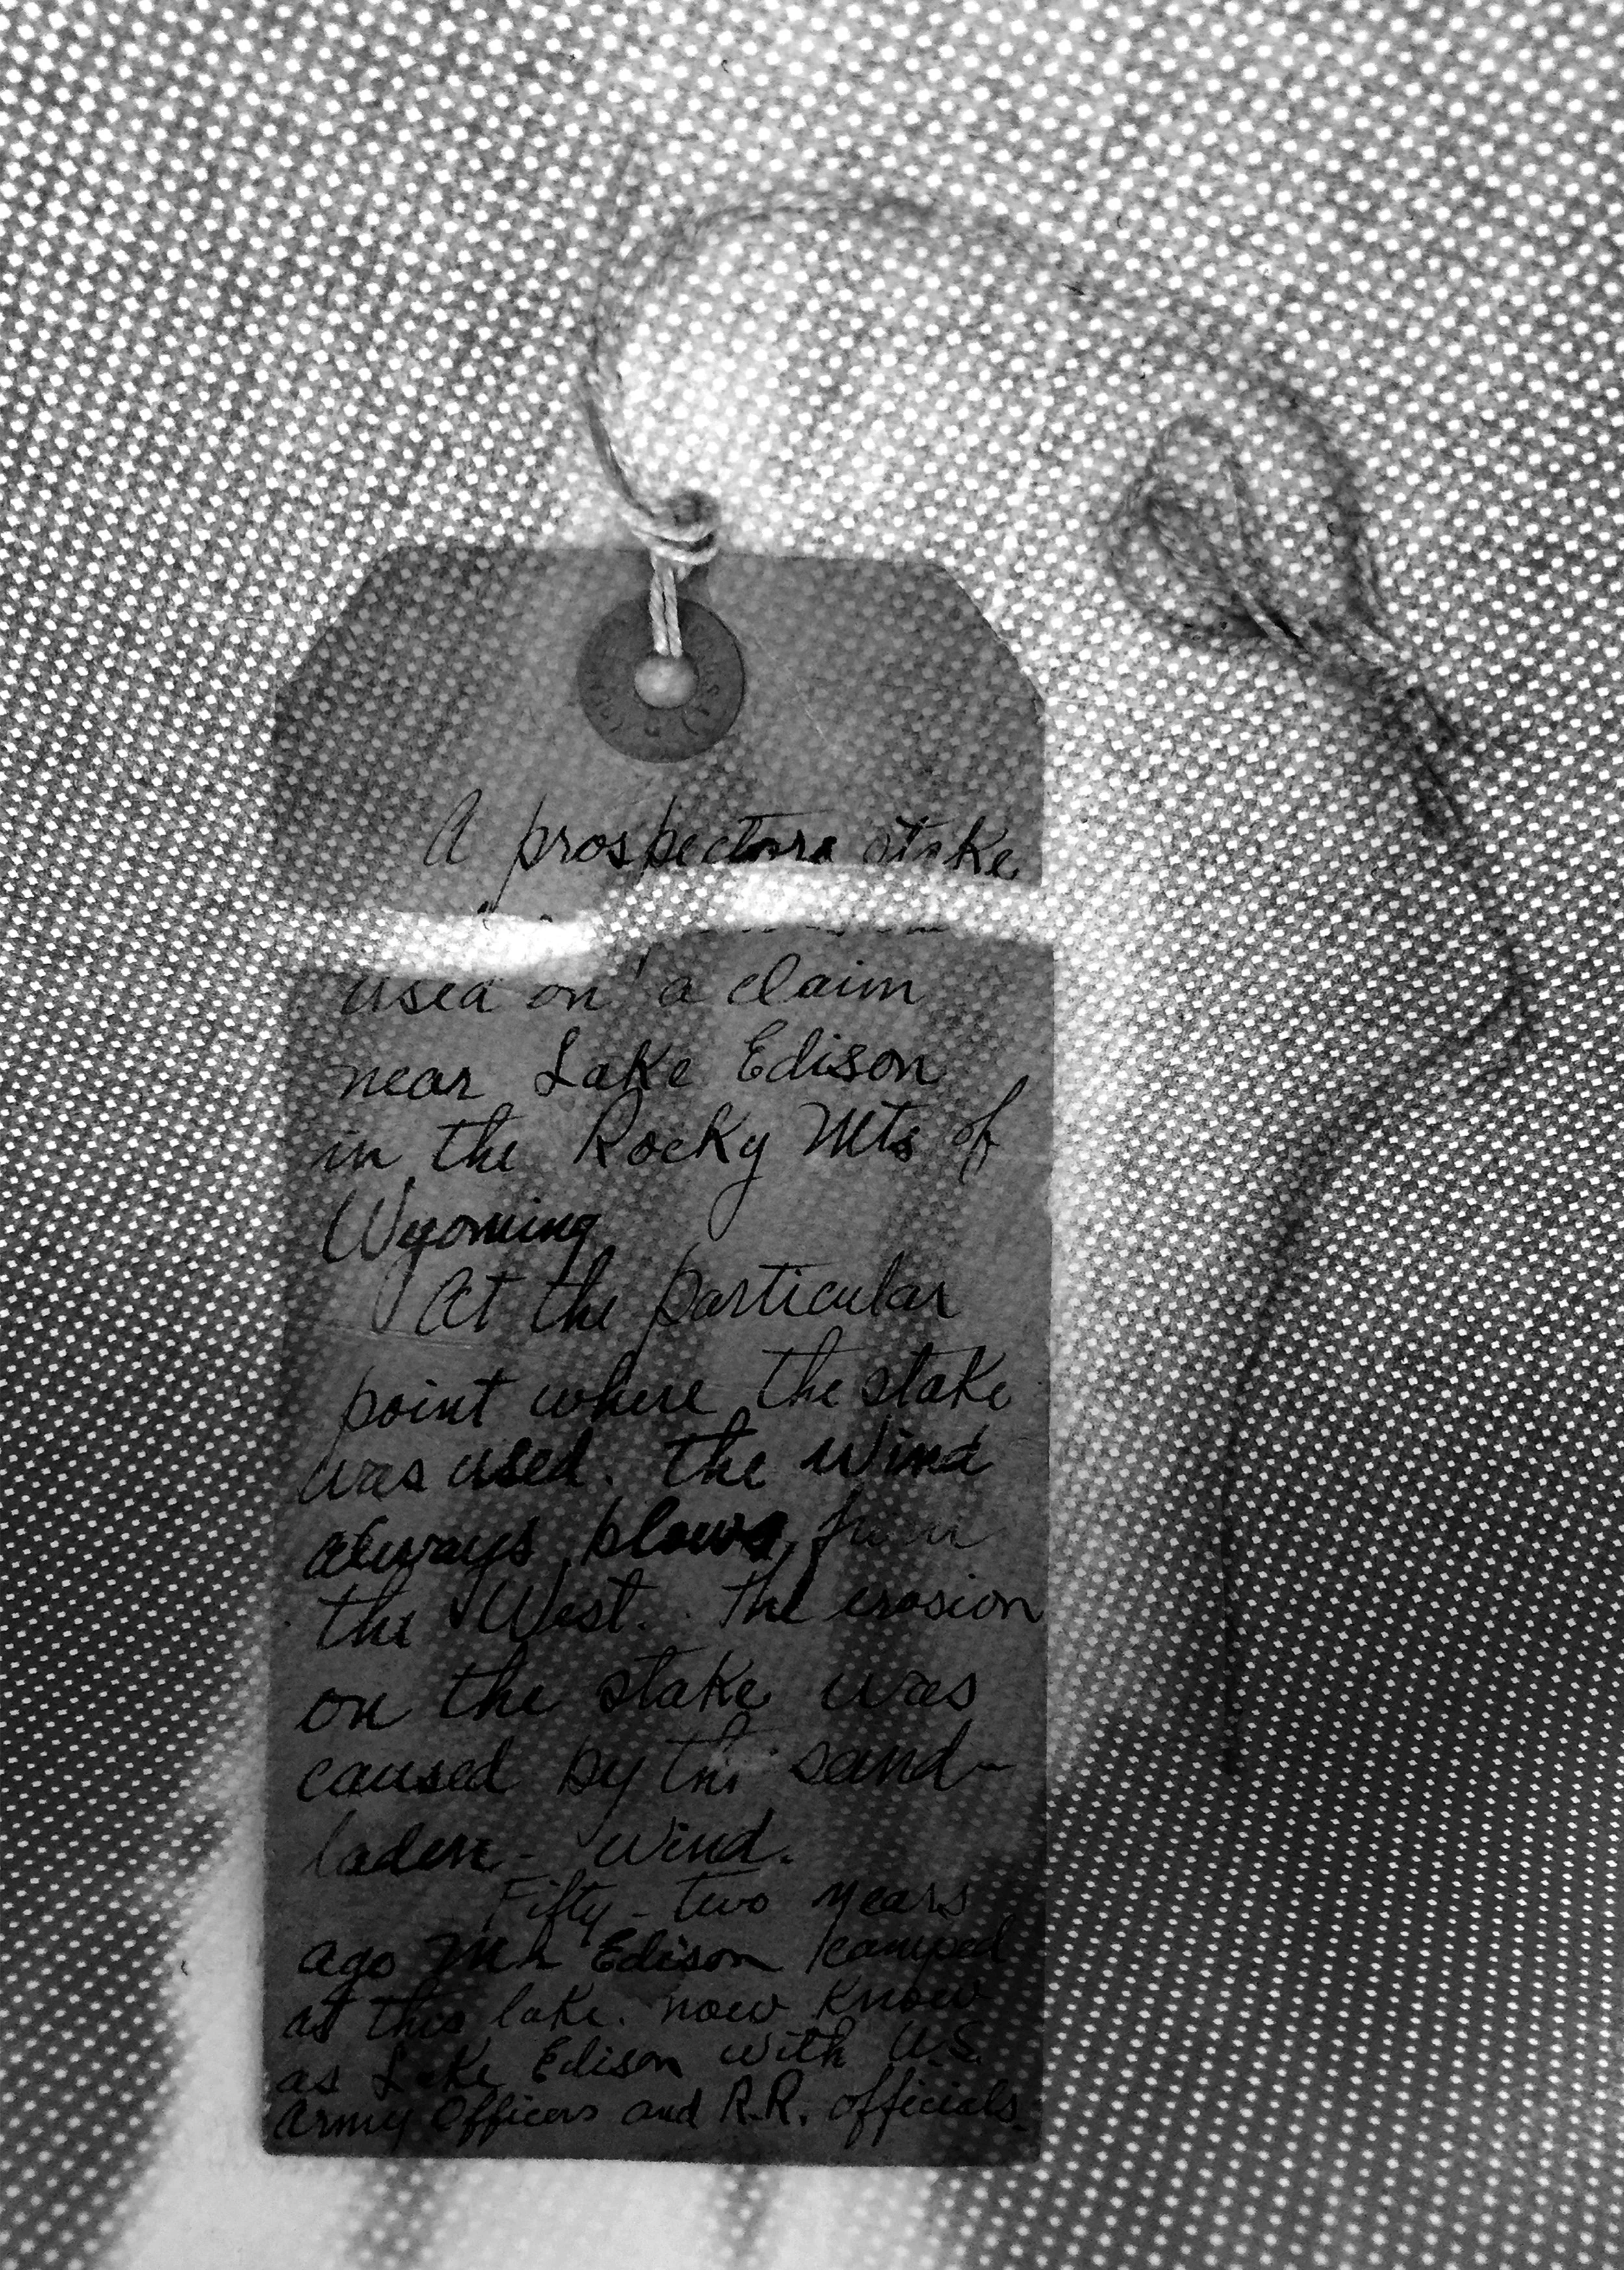 A prospectors stake
used on a claim
near Lake Edison
in the Rocky Mts of
Wyoming
At the particular
point where the stake
was used. the wind
always blows from
the West. The erosion
on the stake was
caused by the sand-
laden - wind.
Fifty-two years
ago Mr Edison camped
at this lake. now know
as Lake Edison with U.S.
Army Officers and R.R. officials.